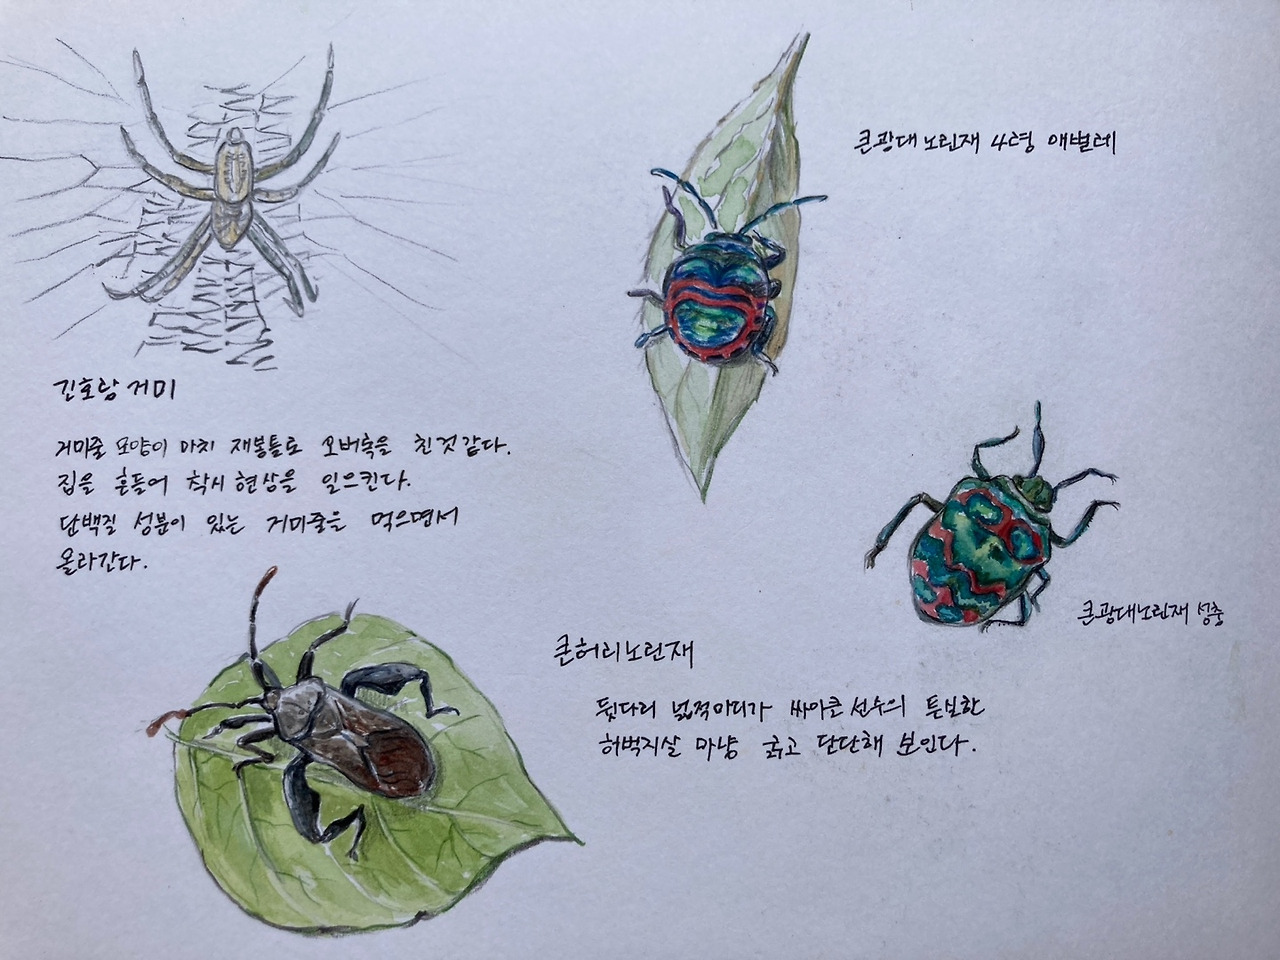 긴호랑거미
거미줄 모양이 마치 재봉틀로 오버룩을 친것 같다.
집을 흔들어 착시 현상을 일으킨다.
단백질 성분이 있는 거미줄을 먹으면서
올라간다.
큰광대노린재 4령 애벌레
큰광대노린재 성충
큰허리노린재
뒷다리 넓적마디가 싸이클 선수의 튼실한
허벅지살 마냥 굵고 단단해 보인다.